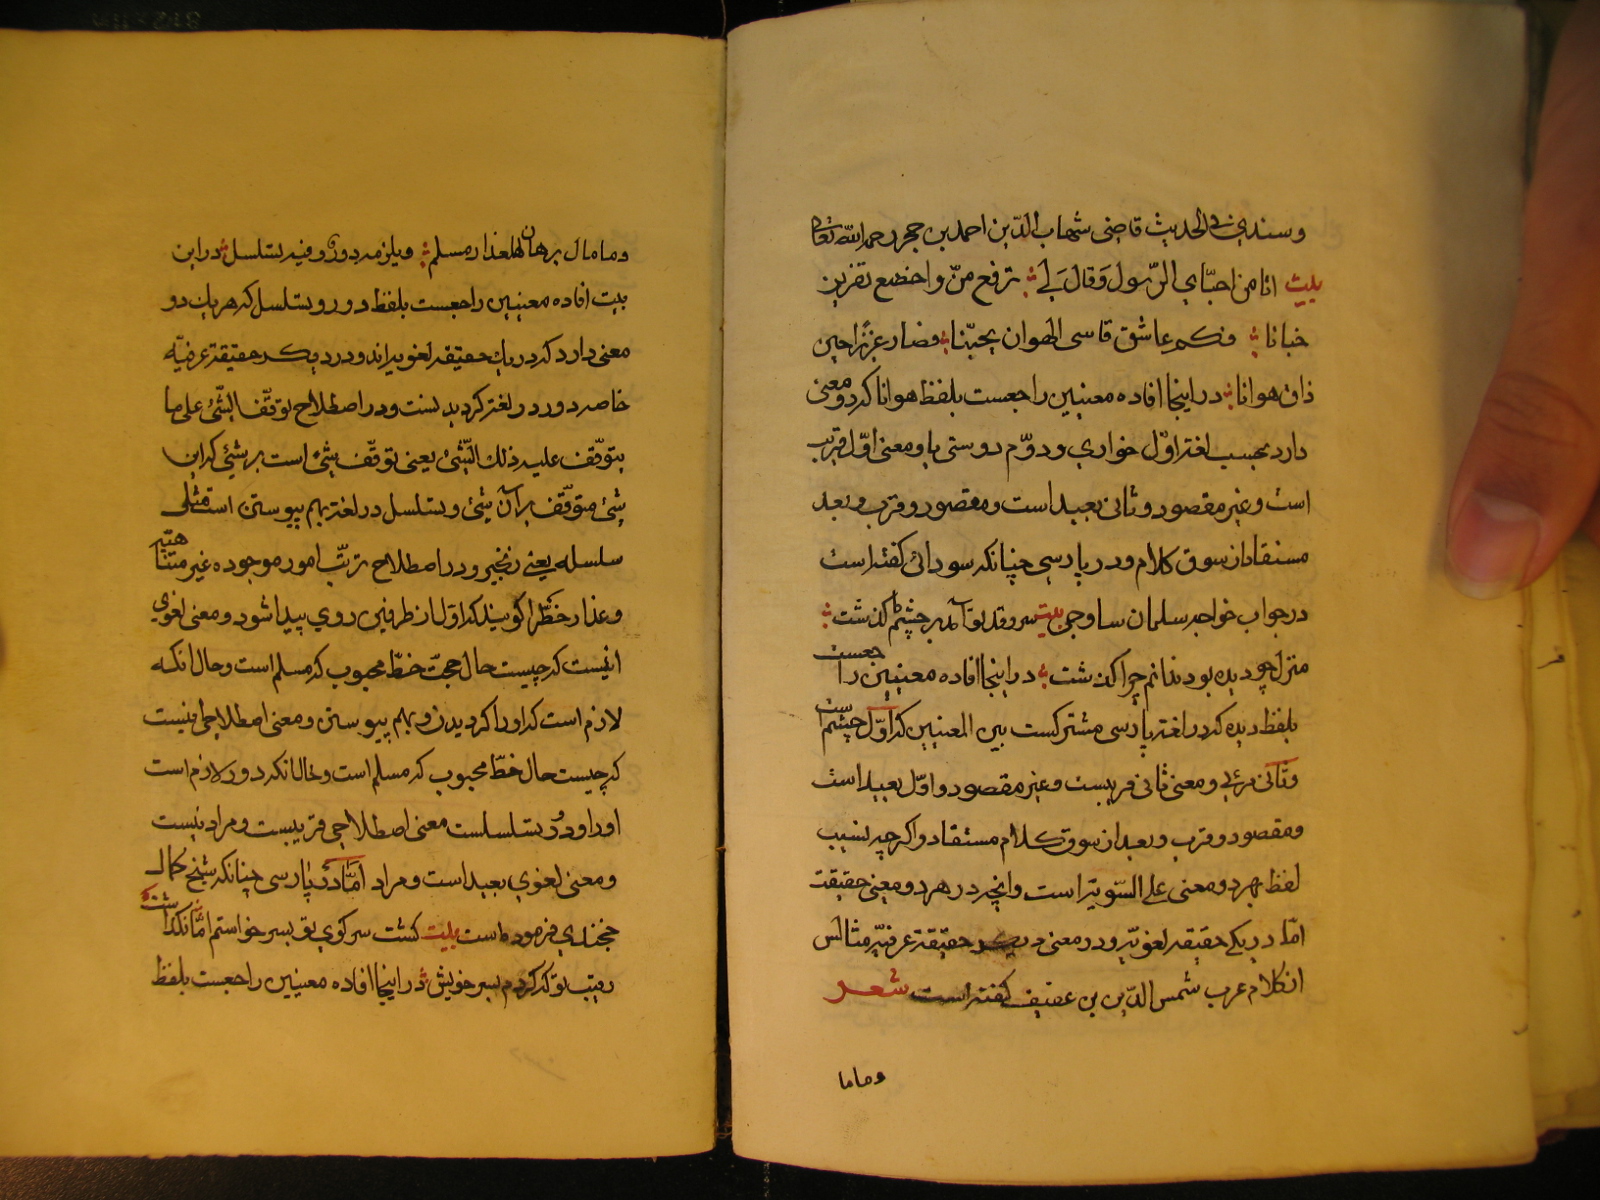 وسندي في الحديث قاضى شهاب الدّين احمد بن حجر رحمه الله تعالى
بيت انا من احبّاي الرّسول وَقال لي ترفع منّ واخضع تقزين
خبانا فكم عاشق قاسى الهوان بحبّنا فصار عزيزًا حين
ذاق هوانا در اينجا افاده معنيين راجعست بلفظ هوانا كه دو معنى
دارد بحسب لغة اوّل خواري ودوّم دوستى ما ومعنى اوّل قريب
است وغير مقصود وثانى بعيد است ومقصود وقرب وبعد
مستفاد از سوق كلام ودر پارسى چنانكه سودائى كفته است
در جواب خواجه سلمان ساوجى بيت سرو قد تو آمد بر چشمم كذشت
منزل چو ديده بود ندانم چرا كذشت در اينجا افاده معنيين راجعست
بلفظ ديده كه در لغة پارسى مشتركست بين المعنيين كه اوّل چشم است
وثانى مرئي ومعنى ثانى قريبست وغير مقصود واوّل بعيد است
ومقصود وقرب وبعد از سوق كلام مستفاد واكرچه نسبت
لفظ بهر دو معنى على السّويّه است وانچه در هر دو معنى حقيقت
امّا در يكى حقيقه لغويّه ودر معنى ديكر حقيقة عرفيّه مثالش
از كلام عرب شمس الدّين بن عفيف كفته است شعر
وماما
وما مال برهان لعذار مسلم ويلزمه دور وفيه تسلسل در اين
بيت افاده معنيين راجعست بلفظ دور وتسلسل كه هر يك دو
معنى دارد كه در يك حقيقه لغويه اند ودر ديكر حقيقة عرفيّه
خاصه دور در لغة كرديدنست ودر اصطلاح توقّف الشّئ على ما
يتوقّف عليه ذلك الشّئ يعنى توقّف شئ است بر شئي كه اين
شئ متوقّف بر آن شئ وتسلسل در لغة بهم پيوستن است مثل
سلسله يعنى زنجير ودر اصطلاح ترتّب امور موجوده غير متناهيّه
وعذار خطّرا كويند كه اوّل از طرفين روي پيدا شود ومعنى لغوي
اينست كه چيست حال حجت خطّ محبوب كه مسلم است وحال انكه
لازم است كه اورا كرديدن وبهم پيوستن ومعنى اصطلاحى اينست
كه چيست حال خطّ محبوب كه مسلم است وحال انكه دور لازم است
اورا ودر تسلسلست معنى اصطلاحى قريبست ومراد نيست
ومعنى لغوي بعيد است ومراد امّا در پارسى چنانكه شيخ كمال
خجندي فرموده است بيت كشت سر كوي تو بسر خواستم امّا نكذاشت
رقيب تو كه كردم بسر خويش در اينجا افاده معنيين راجعست بلفظ